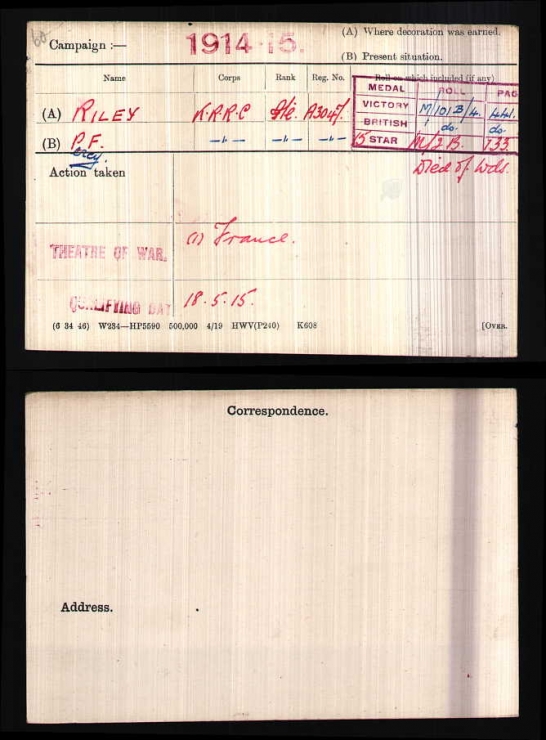 (A) Where decoration was earned.
Campaign :— 1914-15.
(B) Present situation.
Name Corps Rank Reg. No. Roll on which included (if any)
MEDAL ROLL PAG
(A) RILEY K.R.R.C Pte. A3047. VICTORY M/101B/4. 441.
(B) P.F. —"— —"— —"— BRITISH do. do.
ercy. 15 STAR M/2 B. 133.
Action taken Died of Wds.
THEATRE OF WAR. (1) France.
QUALIFYING DAT 18.5.15.
(6 34 46) W234—HP5590 500,000 4/19 HWV(P240) K608 [OVER.
Correspondence.
Address.